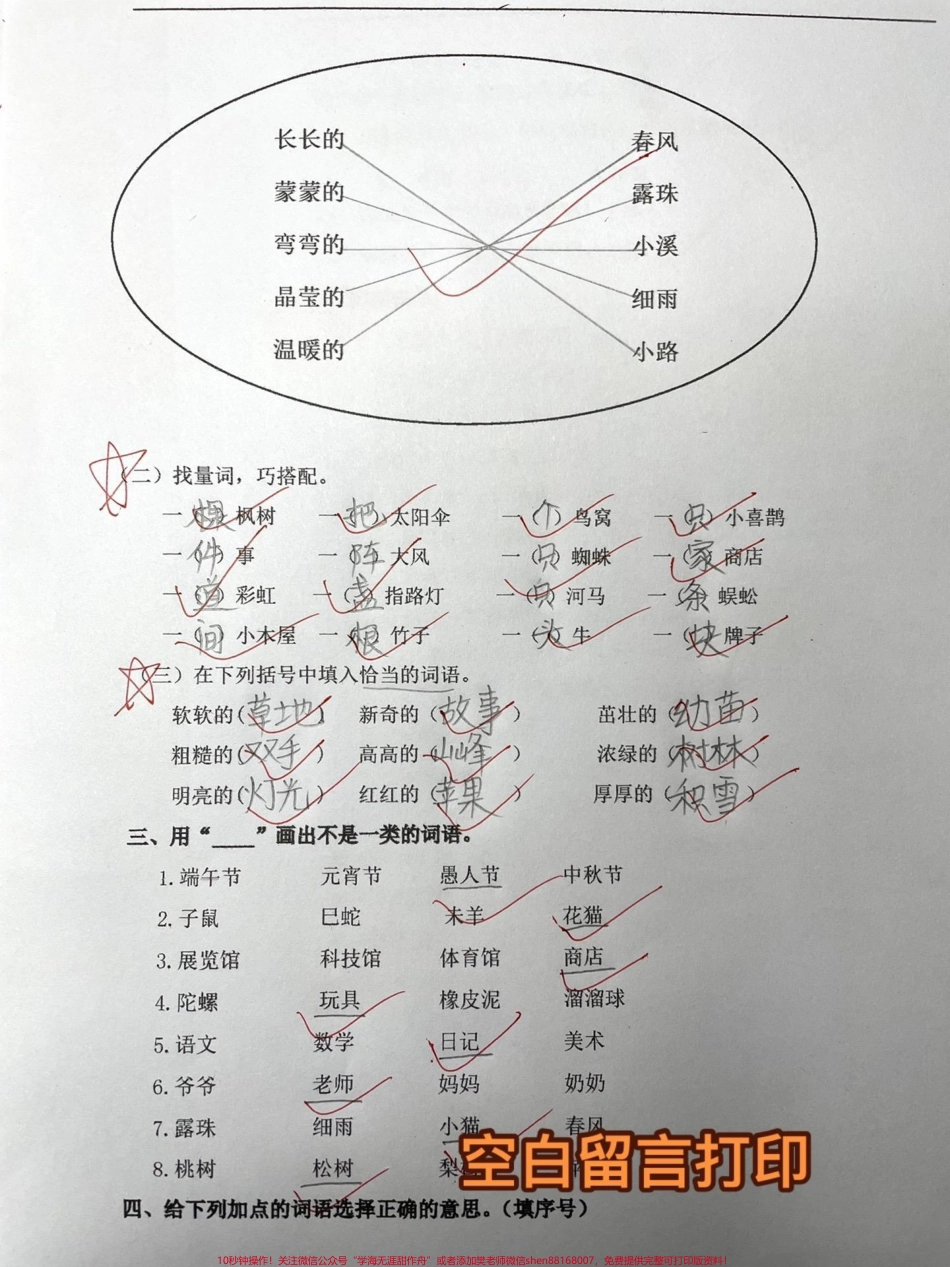 长长的 春风
蒙蒙的 露珠
弯弯的 小溪
晶莹的 细雨
温暖的 小路
(二)找量词，巧搭配。
一(棵)枫树 一(把)太阳伞 一(个)鸟窝 一(只)小喜鹊
一(件)事 一(阵)大风 一(只)蜘蛛 一(家)商店
一(道)彩虹 一(盏)指路灯 一(只)河马 一(条)蜈蚣
一(间)小木屋 一(根)竹子 一(头)牛 一(块)牌子
(三)在下列括号中填入恰当的词语。
软软的(草地) 新奇的(故事) 茁壮的(幼苗)
粗糙的(双手) 高高的(山峰) 浓绿的(树林)
明亮的(灯光) 红红的(苹果) 厚厚的(积雪)
三、用“____”画出不是一类的词语。
1.端午节 元宵节 愚人节 中秋节
2.子鼠 巳蛇 未羊 花猫
3.展览馆 科技馆 体育馆 商店
4.陀螺 玩具 橡皮泥 溜溜球
5.语文 数学 日记 美术
6.爷爷 老师 妈妈 奶奶
7.露珠 细雨 小猫 春风
8.桃树 松树 梨
空白留言打印
四、给下列加点的词语选择正确的意思。(填序号)
10秒钟操作！关注微信公众号“学海无涯甜作舟”或者添加樊老师微信shen88168007，免费提供完整可打印版资料！